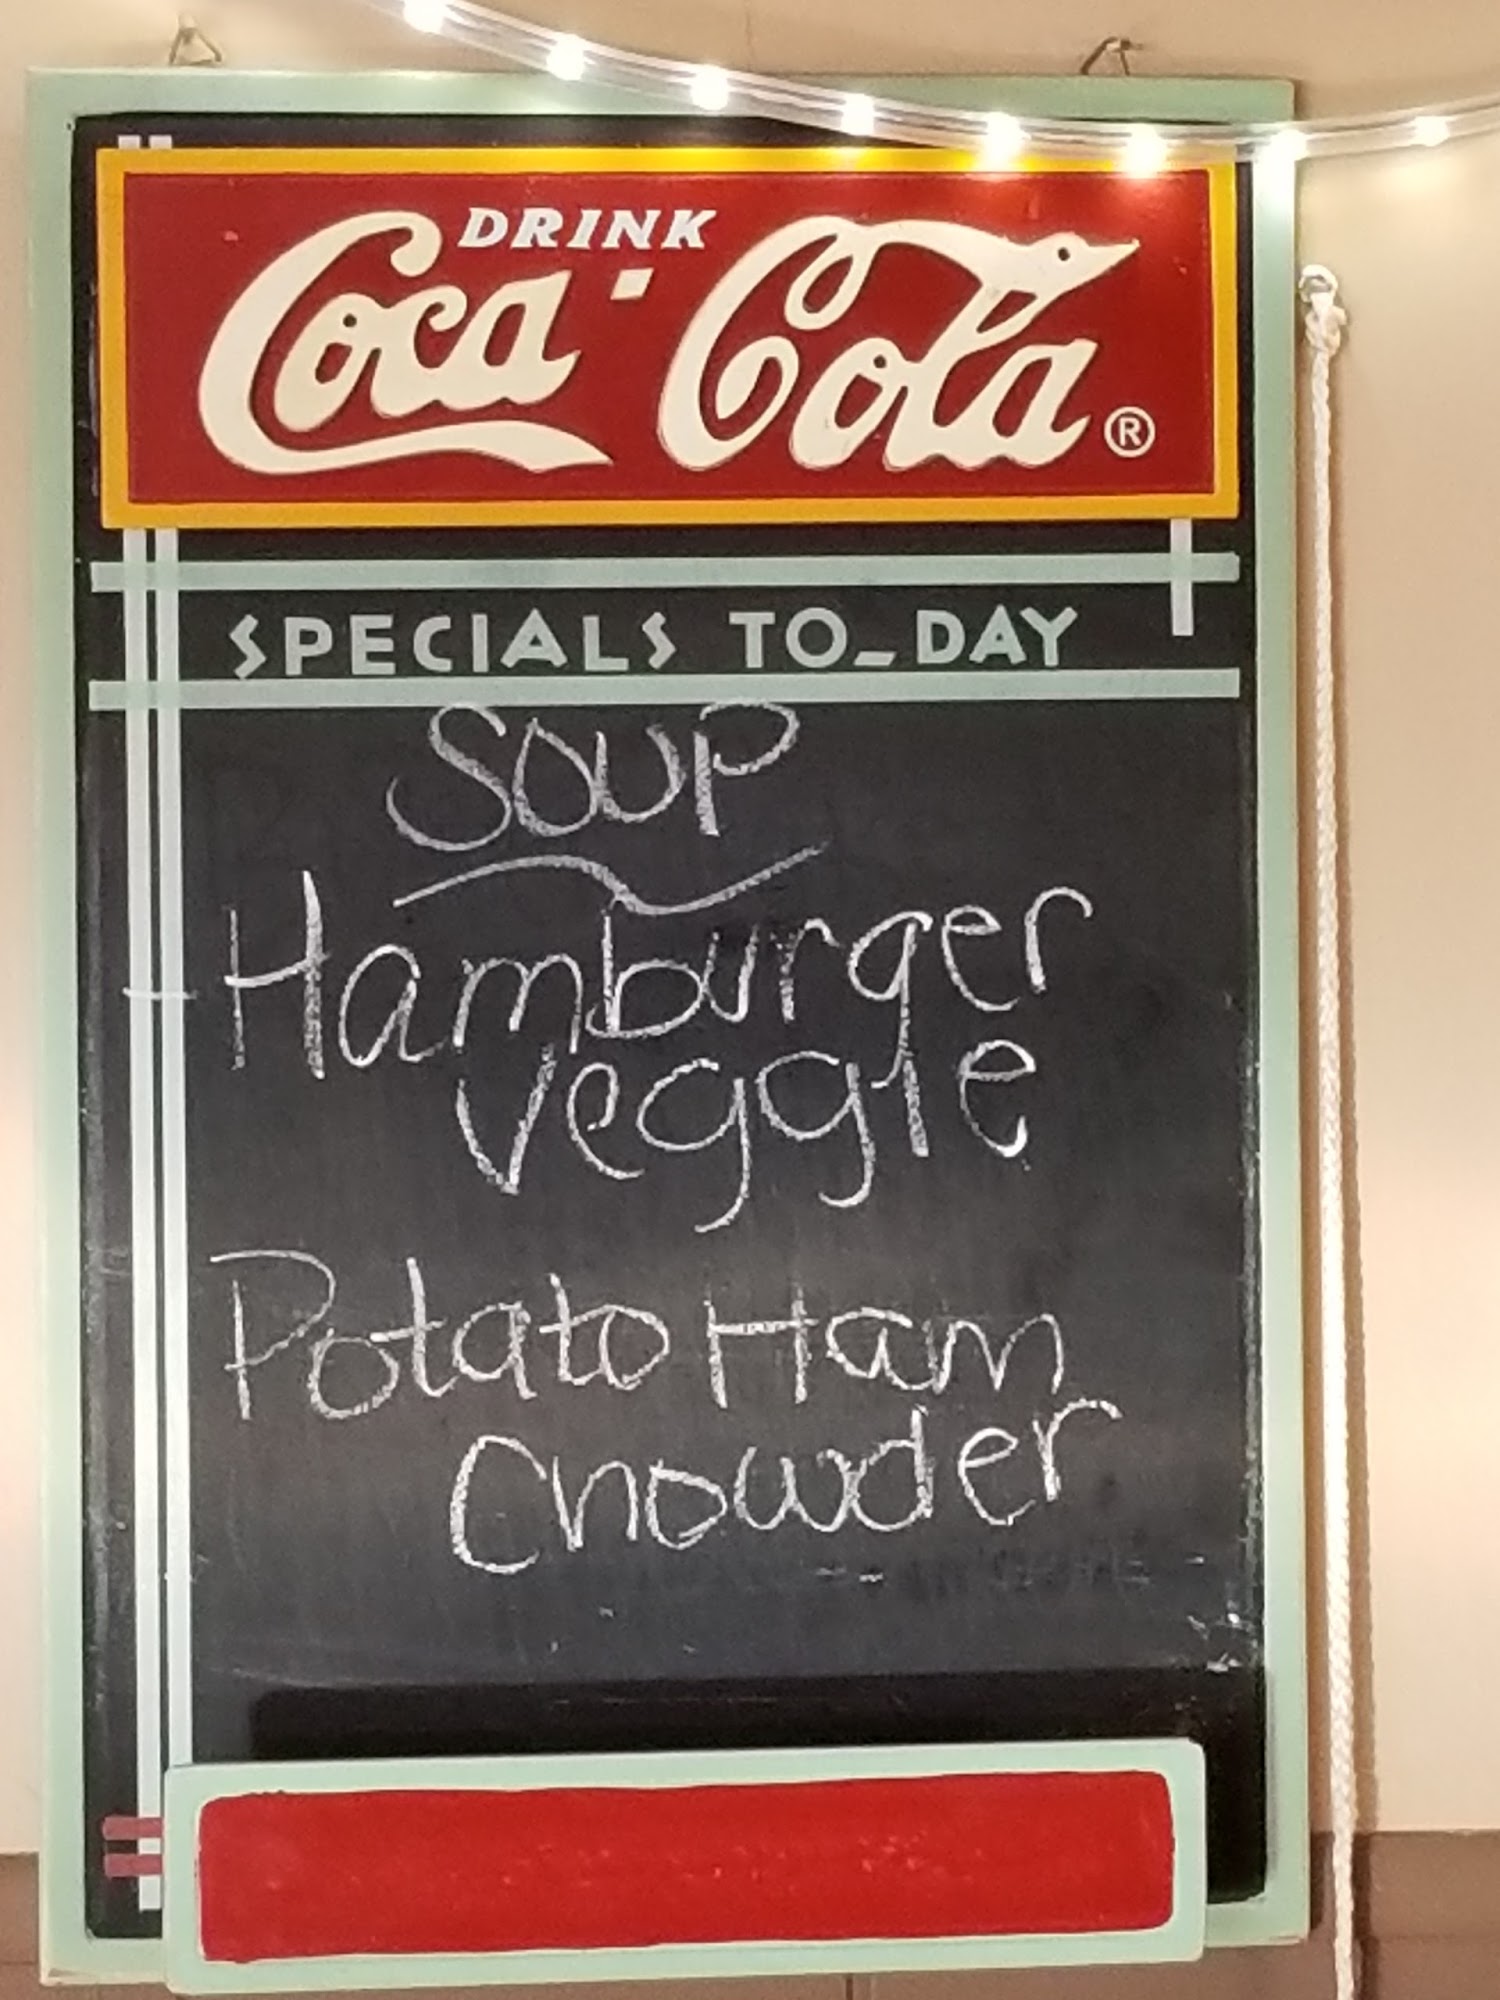 DRINK
Coca-Cola®
SPECIALS TO-DAY
SOUP
Hamburger
Veggie
Potato Ham
Chowder